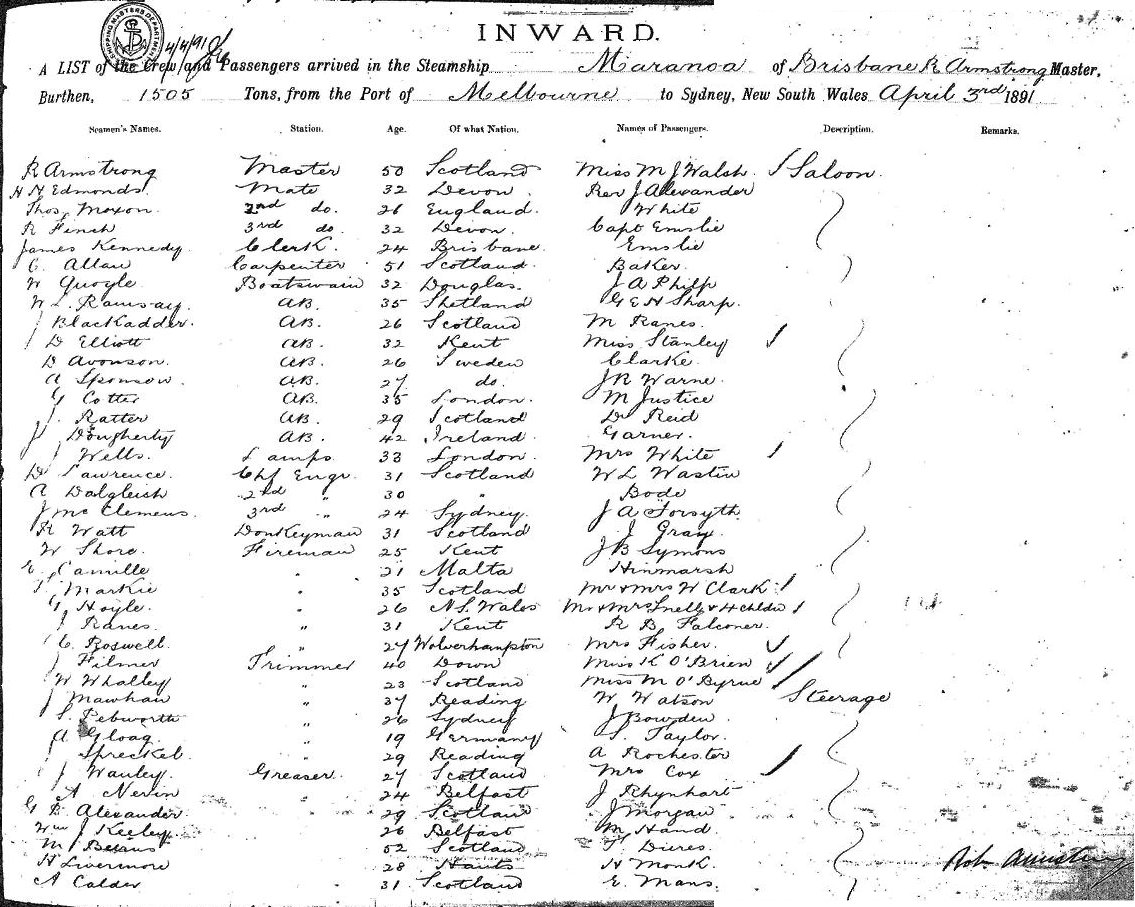 SHIPPING MASTERS DEPARTMENT
4/4/91
INWARD.
A LIST of the Crew and Passengers arrived in the Steamship Maranoa of Brisbane R Armstrong Master,
Burthen, 1505 Tons, from the Port of Melbourne to Sydney, New South Wales April 3rd 1891
Seamen's Names. Station. Age. Of what Nation. Names of Passengers. Description. Remarks.
R Armstrong Master 50 Scotland Miss M J Walsh / Saloon.
H N Edmonds. Mate 32 Devon. Rev J Alexander
Thos. Moxon. 2nd do. 26 England. White
R Finch 3rd do. 32 Devon. Capt Emslie
James Kennedy. Clerk. 24 Brisbane. Emslie
C. Allan Carpenter 51 Scotland. Baker.
W Quoyle Boatswain 32 Douglas. J A Philp
W L. Ramsay. AB. 35 Shetland G E H Sharp.
J Blackadder. AB. 26 Scotland M Ranes.
D Elliott AB. 32 Kent Miss Stanley
D Avonson. AB. 26 Sweden Clarke.
A Sponsow. AB. 27 do. J R Warne.
G Cotter AB. 35 London. M Justice
J. Ratter AB. 29 Scotland Dr Reid
J Dougherty AB. 42 Ireland. Garner.
J Wells. Lamps. 33 London. Mrs White
D Lawrence. Chf Engr. 31 Scotland W L Wastin
A Dalgleish 2nd " 30 " Bode
J McClemens. 3rd " 24 Sydney. J A Forsyth.
R Watt Donkeyman 31 Scotland J Gray.
W Shore. Fireman 25 Kent J B Symons
Camille " 21 Malta Hinmarsh
Markie " 35 Scotland Mr & Mrs W Clark
G Hoyle. " 26 N S. Wales Mr & Mrs Snell & 4 chldn
J Ranes " 31 Kent R B Falconer.
C. Boswell. " 27 Wolverhampton Mrs Fisher.
J Filmer Trimmer 40 Down Miss K O'Brien
W Whalley " 23 Scotland Miss M O'Byrne
J Mawhan " 37 Reading W Watson Steerage
S. Pebworth " 26 Sydney J Bowden
A Gloag. " 19 Germany S. Taylor.
J Spreckel. " 29 Reading A Rochester
J Wauley. Greaser. 27 Scotland Mrs Cox
A Nevin 24 Belfast J Rhynhart
G B Alexander 29 Scotland J Morgan
Wm J Keeley. 26 Belfast M Hand
M 52 Scotland T Dieres.
H Livermore 28 Hants H Monk.
A Calder 31. Scotland E. Mans.
Rob. Armstrong